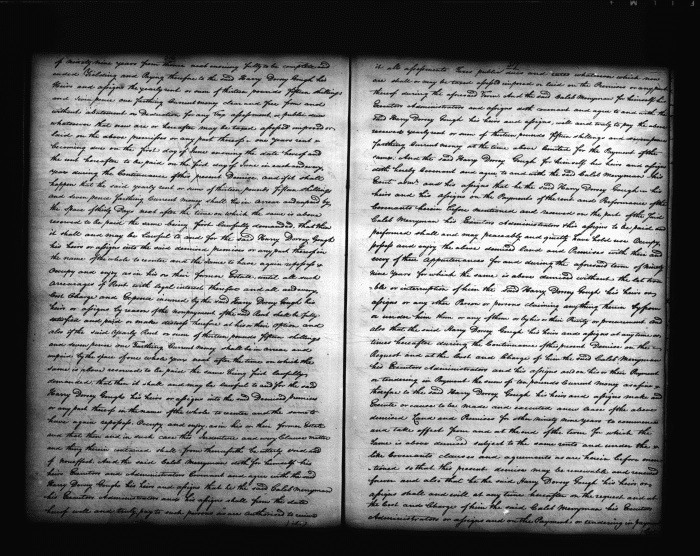 of ninety nine years from thence next ensuing fully to be compleated and
ended Yielding and Paying therefor to the said Harry Dorsey Gough his
Heirs and assigns the yearly rent or sum of thirteen pounds fifteen shillings
and seven pence one farthing Current money clear and free from and
without abatement or Deduction for any Tax assessment or public dues
whatsoever that now are or hereafter may be taxed assessed imposed or
laid on the above premises or any part thereof one years rent
becoming due on the first day of June ensuing the date hereof and
the rent hereafter to be paid on the first day of June in each and every
year during the Continuance of this present Demise and if it shall
happen that the said yearly rent or sum of thirteen pounds fifteen shillings
and seven pence farthing Current money shall be in arrear and unpaid by
the space of thirty Days next after the time on which the same is above
reserved to be paid the same being first lawfully demanded, that then
it shall and may be lawful to and for the said Harry Dorsey Gough
his heirs or assigns into the said demised premises or any part thereof in
the name of the whole to reenter and the same to have again repossess
Occupy and enjoy as in his or their former Estate until all such
Arrearages of Rent with legal interest therefor and all and every
Cost Charge and Expence incurred by the said Harry Dorsey Gough his
heirs or assigns by reason of the nonpayment of the said Rent shall be fully
satisfied and paid or made thereof therefor at his or their option and
also if the said Yearly Rent or sum of thirteen pounds fifteen shillings
and seven pence one Farthing Current money shall be in arrear and
unpaid by the space of one whole year next after the time on which the
same is above reserved to be paid the same being first lawfully
demanded. that then it shall and may be lawful to and for the said
Harry Dorsey Gough his heirs or assigns into the said Demised premises
or any part thereof in the name of the whole to reenter and the same to
have again repossess Occupy and enjoy as in his or their former Estate
and that then and in such case this Indenture and every Clause matter
and thing herein contained shall from thenceforth be utterly void and
of no effect And the said Caleb Merryman doth for himself his
heirs Executors and administrators Covenant and agree with the said
Harry Dorsey Gough his heirs and assigns that he the said Caleb Merryman
his Executors Administrators and his assigns shall from the date
hereof well and truly pay to such persons as are authorized to receive
it all assessments Taxes public dues and rates whatsoever which now
are shall or may be taxed assessed imposed or laid on the Premises or any part
thereof during the aforesaid Term And the said Caleb Merryman for himself his
Executors Administrators and assigns doth covenant and agree to and with the
said Harry Dorsey Gough his heirs and assigns, will and truly to pay the rent
reserved yearly rent or sum of thirteen pounds fifteen shillings and seven pence
farthing Current money at the time above limited for the Payment of the
same. And the said Harry Dorsey Gough for himself his heirs and assigns
doth hereby Covenant and agree to and with the said Caleb Merryman his
and his assigns that he the said Harry Dorsey Gough or his
heirs and his assigns on the Payment of the rent and Performance of the
Covenants herein before mentioned and reserved on the part of the said
Caleb Merryman his Executors Administrators his assigns to be paid and
performed shall and may peaceably and quietly have hold use Occupy,
possess and enjoy the above demised Land and Premises with their and
every of their Appurtenances for and during the aforesaid term of Ninety
nine Years for which the same is above demised without the let trou-
ble or interruption of him the said Harry Dorsey Gough his heirs or
assigns or any other Person or persons claiming anything herein by from
or under him them or any of them or by his or their Privity or procurement and
also that the said Harry Dorsey Gough his heirs and assigns at any time or
times hereafter during the Continuance of this present Demise on the
Request and at the Cost and Charge of him the said Caleb Merryman
his Executors Administrators and his assigns and on his or their Payment
or tendering in Payment the sum of ten pounds Current money as a fine
therefor to the said Harry Dorsey Gough his heirs and assigns make and
Execute or cause to be made and executed a new lease of the above
demised Land and Premises for other ninety nine years to commence
and take effect from and at the end of the term for which the
same is above demised subject to the same rents and under the
like Covenants clauses and agreements as are herein before men-
tioned so that this present demise may be renewable and renewed
forever and also that he the said Harry Dorsey Gough his heirs or
assigns shall and will at any time hereafter on the request and at
the Cost and Charge of him the said Caleb Merryman his Executors
Administrators or assigns and on the Payment or tendering in payment